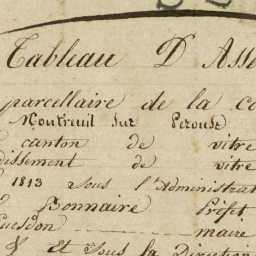 Tableau D'Asse
parcellaire de la co
Montreuil sur Perouse
canton de vitré
dissement de vitré
1813 sous l'Administrat
Bonnaire Préfet
Guesdon maire
& et sous la Direction